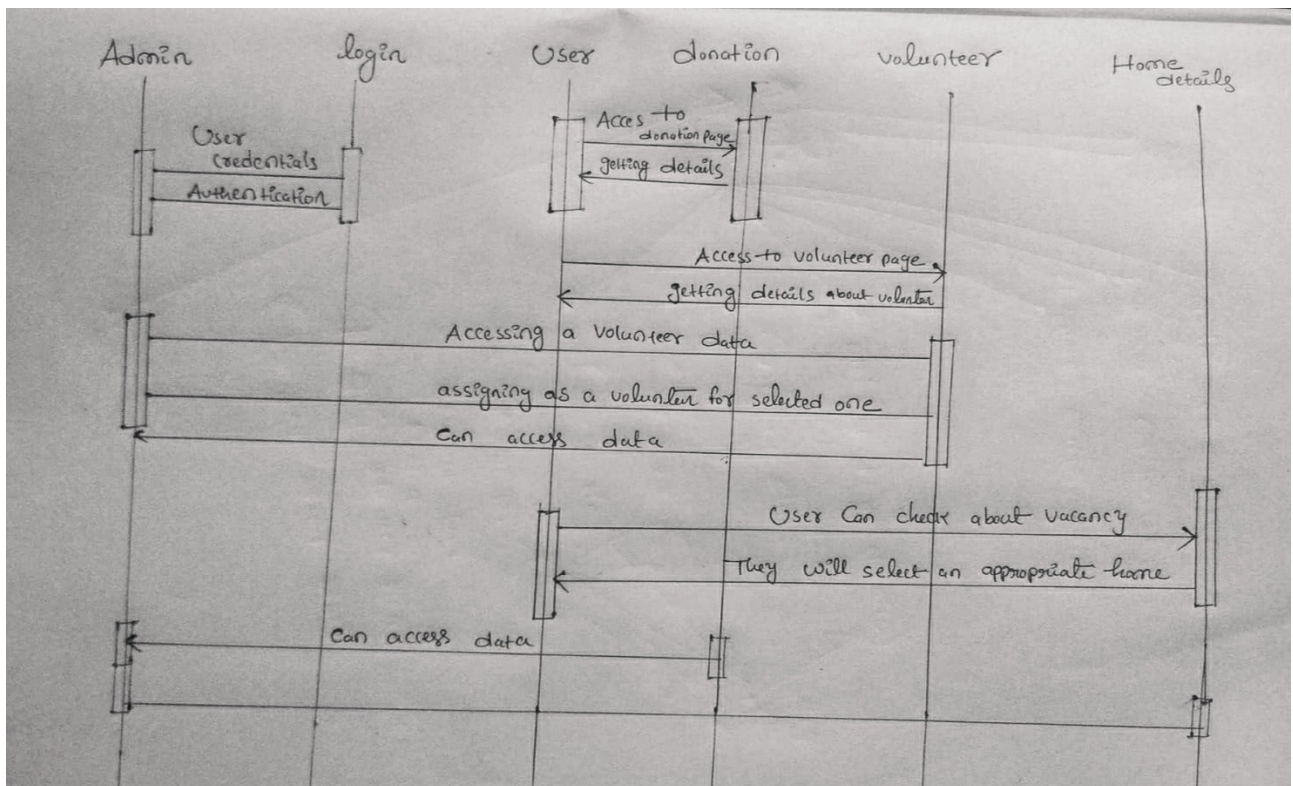 Admin
login
User
donation
volunteer
Home
details
User
Credentials
Authentication
Acces to
donation page
getting details
Access to volunteer page
getting details about volunter
Accessing a volunteer data
assigning as a volunter for selected one
Can access data
User Can check about vacancy
They will select an appropriate home
Can access data